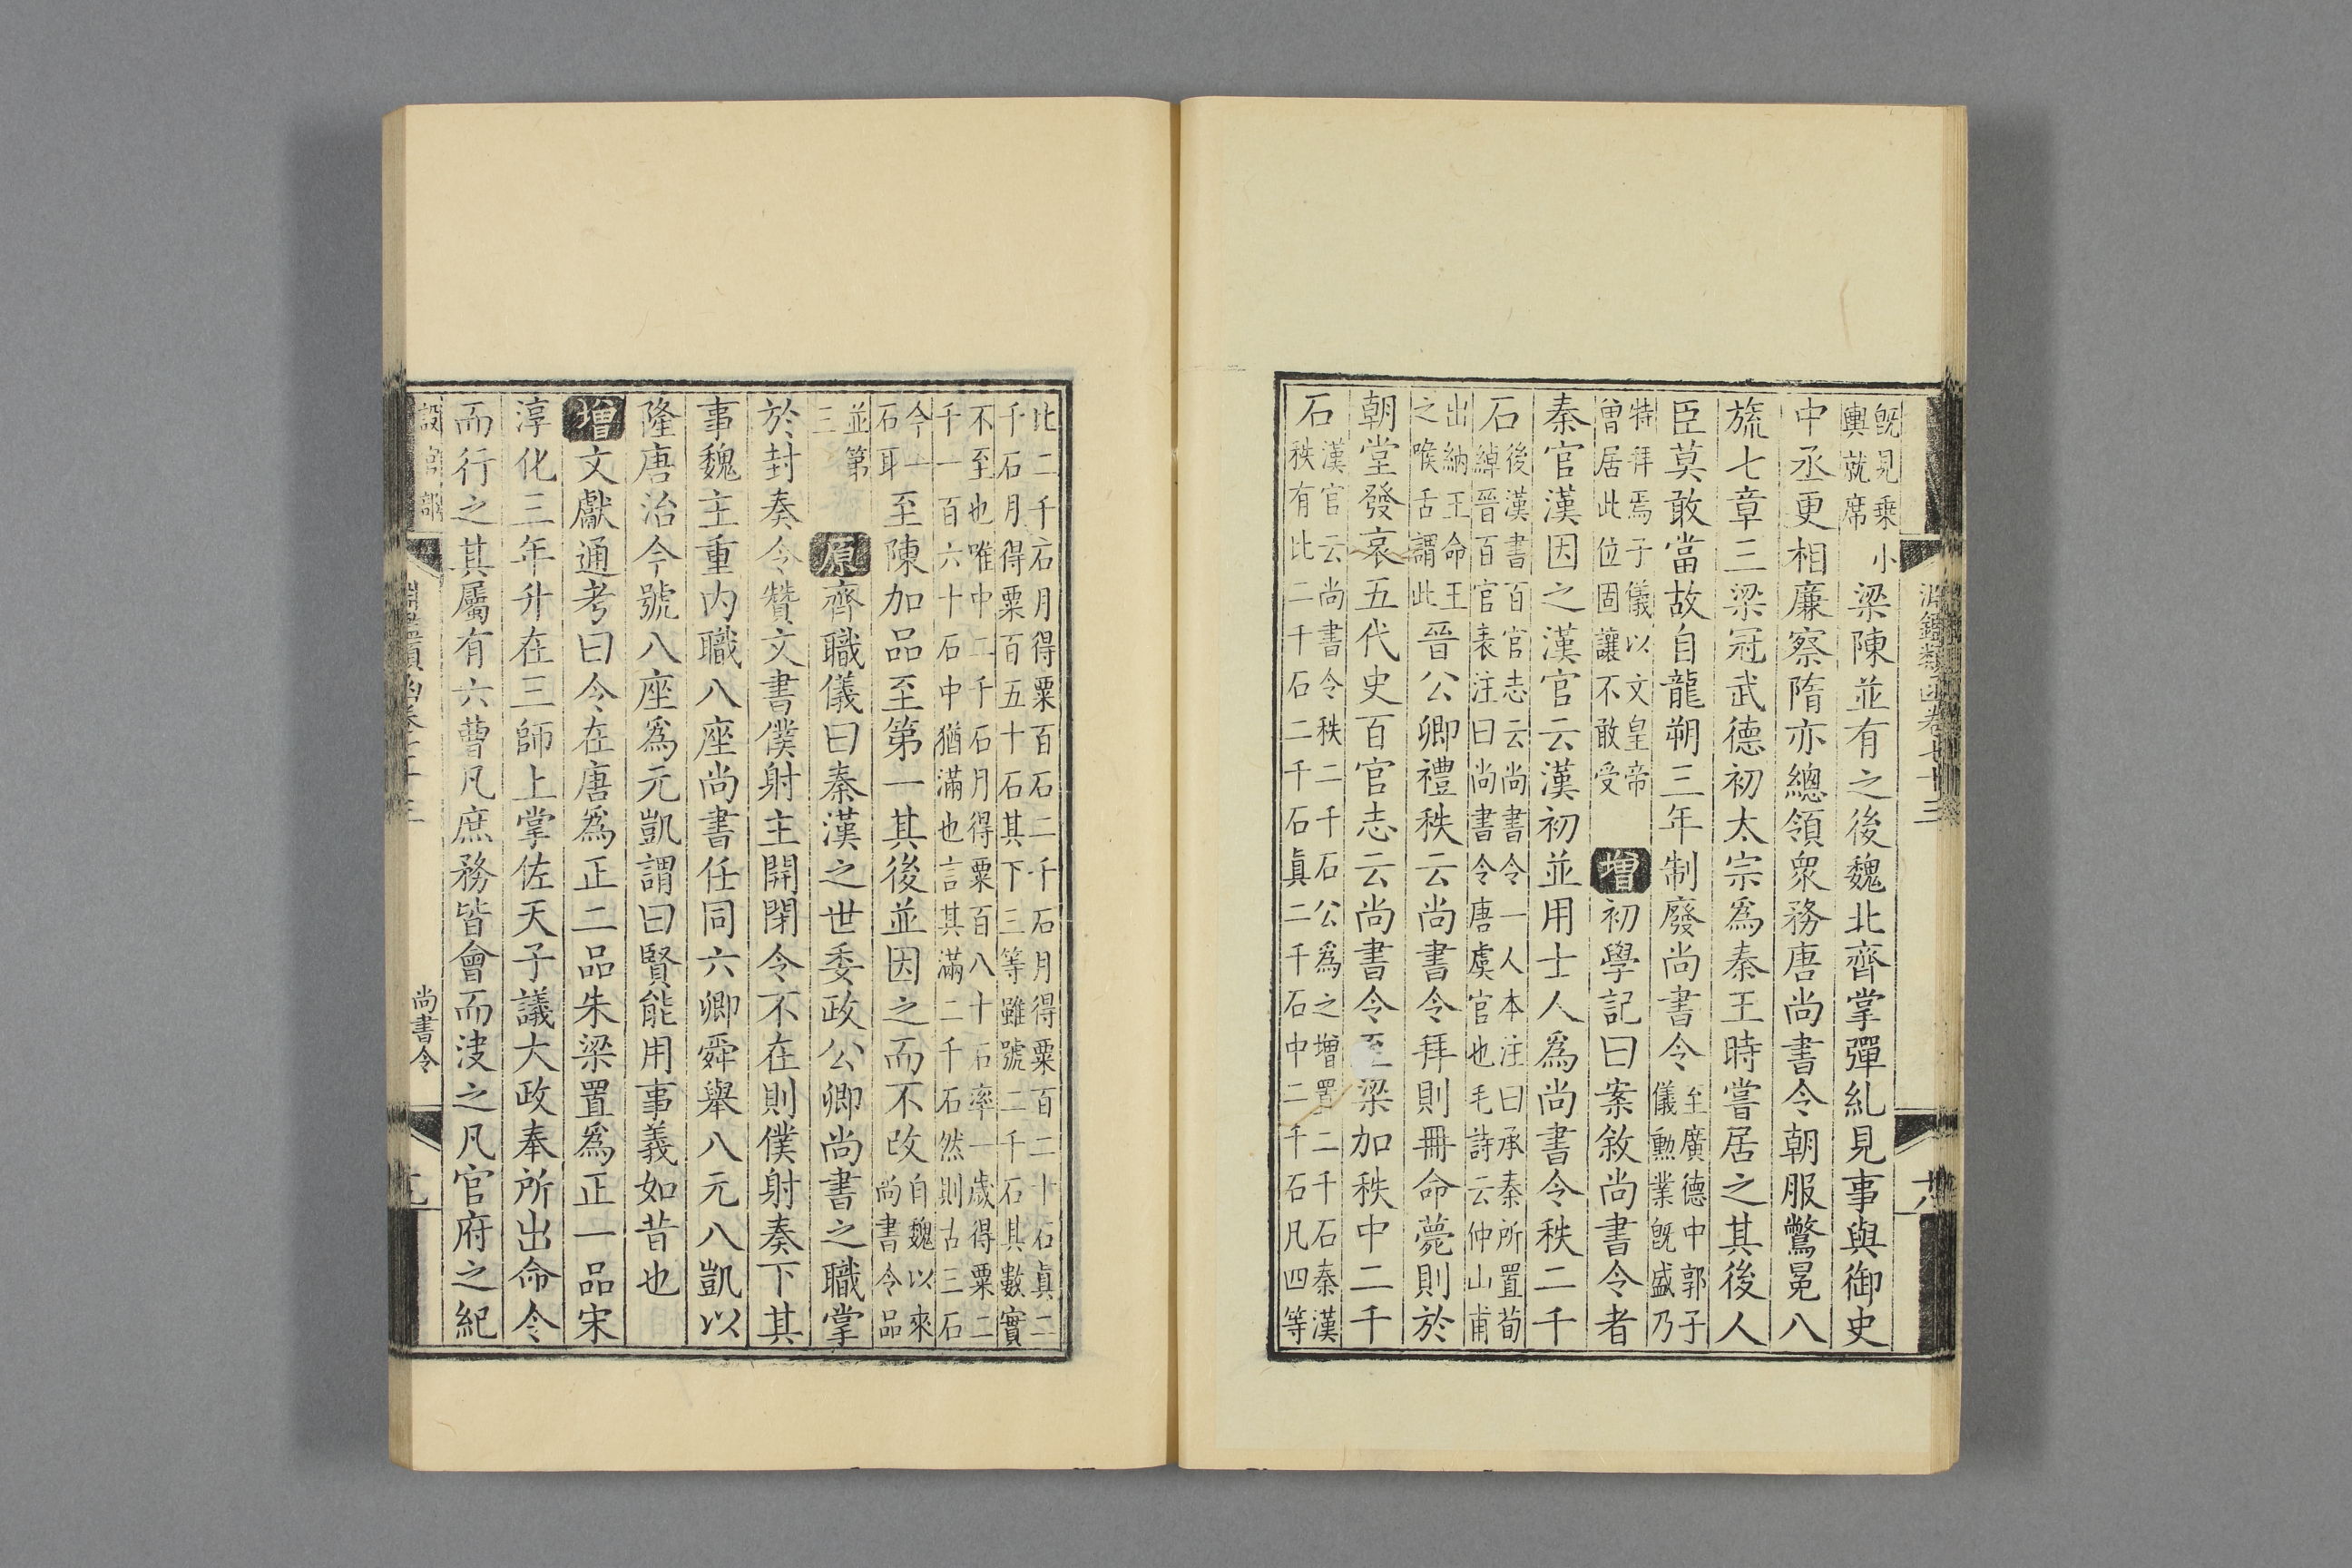 既見乗小
輿就席
梁陳並有之後魏北齊掌彈糺見事與御史
中丞更相廉察隋亦總領衆務唐尚書令朝服鷩冕八
旒七章三梁冠武德初太宗爲秦王時嘗居之其後人
臣莫敢當故自龍朔三年制廢尚書令
至廣德中郭子
儀勳業旣盛乃
特拜焉子儀以文皇帝
曽居此位固讓不敢受
增初學記曰案敘尚書令者
秦官漢因之漢官云漢初並用士人爲尚書令秩二千
石
後漢書百官志云尚書令一人本注曰承秦所置荀
綽晉百官表注曰尚書令唐虞官也毛詩云仲山甫
出納王命王
之喉舌謂此
晉公卿禮秩云尚書令拜則冊命薨則於
朝堂發哀五代史百官志云尚書令至梁加秩中二千
石
漢官云尚書令秩二千石公爲之增置二千石秦漢
秩有比二千石二千石眞二千石中二千石凡四等
比二千石月得粟百石二千石月得粟百二十石眞二
千石月得粟百五十石其下三等雖號二千石其數實
不至也唯中二千石月得粟百八十石率一歲得粟二
千一百六十石中猶滿也言其滿二千石然則古三石
今一
石耳
至陳加品至第一其後並因之而不改
自魏以來
尚書令品
並第
三
原齊職儀曰秦漢之世委政公卿尚書之職掌
於封奏令贊文書僕射主開閉令不在則僕射奏下其
事魏主重内職八座尚書任同六卿舜舉八元八凱以
隆唐治今號八座爲元凱謂曰賢能用事義如昔也
增文獻通考曰令在唐爲正二品朱梁置爲正一品宋
淳化三年升在三師上掌佐天子議大政奉所出命令
而行之其屬有六曹凡庶務皆會而决之凡官府之紀
尚書令